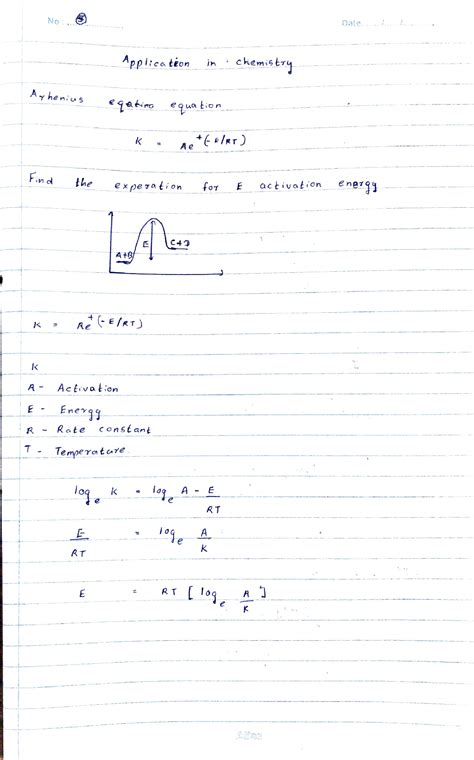 No : ⑤
Date : / /
Application in chemistry
Arhenius eqatino equation
K = Ae^+(-E/RT)
Find the experation for E activation energy
A+B E C+D
K = Ae^+(-E/RT)
K
A - Activation
E - Energy
R - Rate constant
T - Temperature
log_e K = log_e A - E/RT
E/RT = log_e A/K
E = RT [log_e A/K]